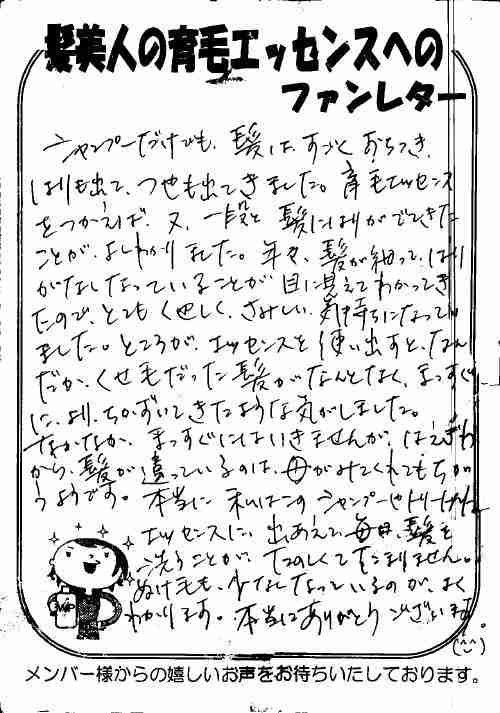 髪美人の育毛エッセンスへの
ファンレター
シャンプーだけでも、髪は、すごく おちつき、
はりも出て、つやも出てきました。育毛エッセンス
をつかえば、又、一段と 髪にはりがでてきた
ことが、よくわかりました。年々、髪が細って、はり
がなくなっていることが 目に見えてわかってき
たので、とても くやしく、さみしい 気持ちになってい
ました。ところが、エッセンスを 使い出すと、なん
だか、くせ毛だった髪がなんとなく、まっすぐ
に、より、ちかずいてきたような気がしました。
なかなか、まっすぐにはいきませんが、はえぎわ
から、髪が違っているのは、母がみてくれてもちが
うようです。本当に 私はこの シャンプーやトリートメント
エッセンスに、出あえて、毎日、髪を
洗うことが、たのしくてたまりません。
ぬけ毛も、少なくなっているのが、よく
わかります。本当にありがとう ございます。
(^^)
メンバー様からの嬉しいお声をお待ちいたしております。